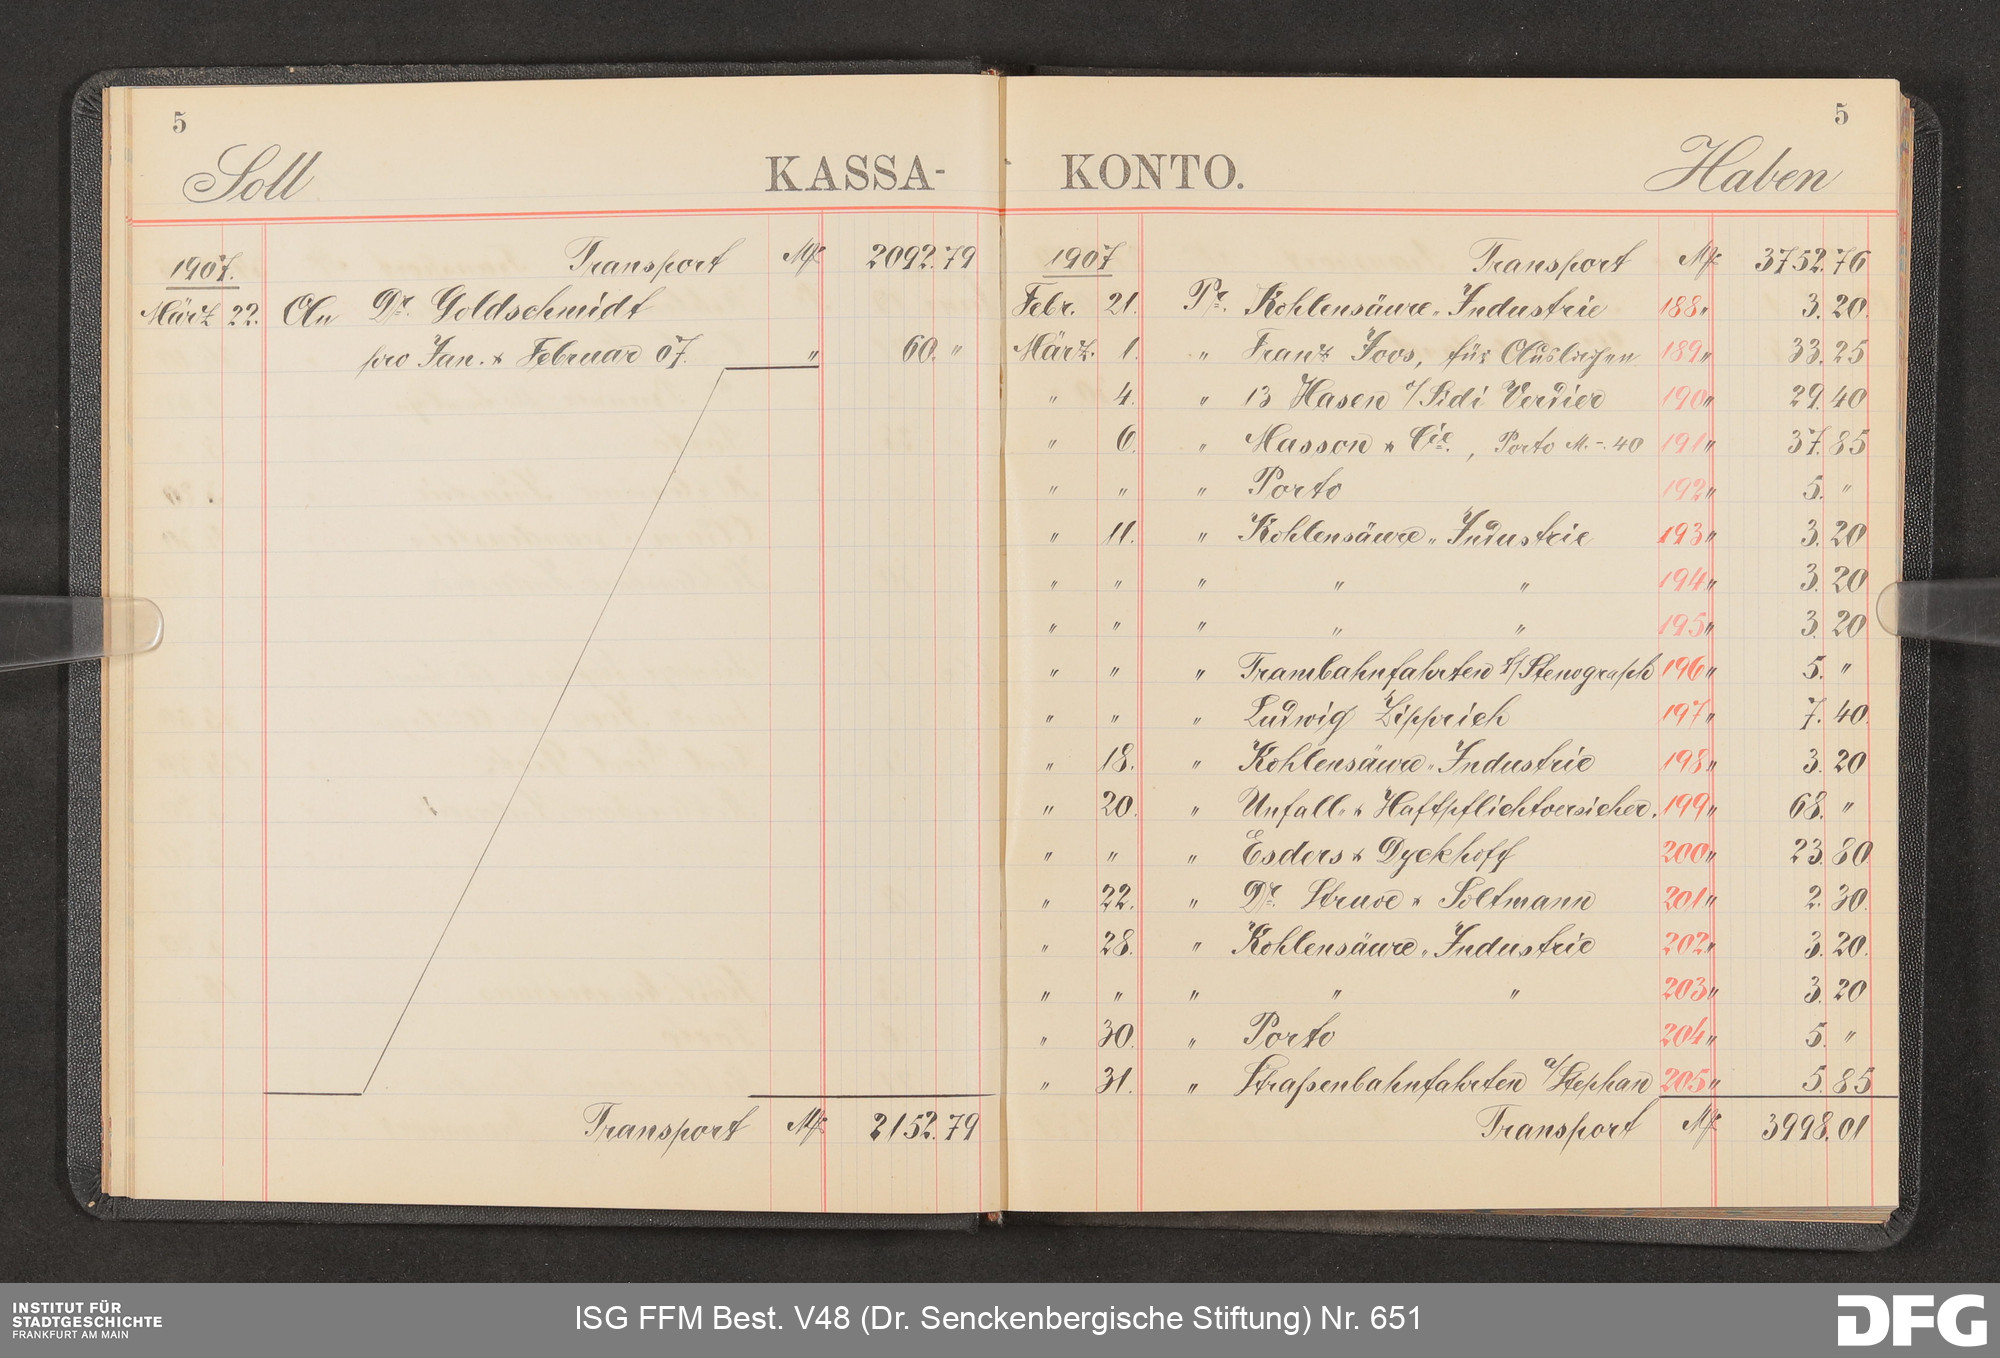 5
Soll KASSA-
1907. Transport Mk 2092.79
März 22. An Dr. Goldschmidt
pro Jan. & Februar 07. " 60. "
Transport Mk 2152.79
5
KONTO. Haben
1907 Transport Mk 3752.76
Febr. 21. Pr. Kohlensäure-Industrie 188 " 3.20.
März. 1. " Franz Joos, für Auslagen 189 " 33.25
" 4. " 13 Hasen a/ Sidi Verdier 190 " 29.40
" 6. " Masson & Cie., Porto M.-.40 191 " 37.85
" " " Porto 192 " 5. "
" 11. " Kohlensäure-Industrie 193 " 3.20
" " " " " 194 " 3.20
" " " " " 195 " 3.20
" " " Trambahnfahrten f/ Stenograph 196 " 5. "
" " " Ludwig Zipprich 197 " 7.40.
" 18. " Kohlensäure-Industrie 198 " 3.20
" 20. " Unfall- & Haftpflichtversicher. 199 " 68. "
" " " Esders & Dyckhoff 200 " 23.80
" 22. " Dr. Struve & Soltmann 201 " 2.30.
" 28. " Kohlensäure-Industrie 202 " 3.20.
" " " " " 203 " 3.20
" 30. " Porto 204 " 5. "
" 31. " Straßenbahnfahrten a/ Stephan 205 " 5.85
Transport Mk 3998.01
INSTITUT FÜR
STADTGESCHICHTE
FRANKFURT AM MAIN
ISG FFM Best. V48 (Dr. Senckenbergische Stiftung) Nr. 651
DFG